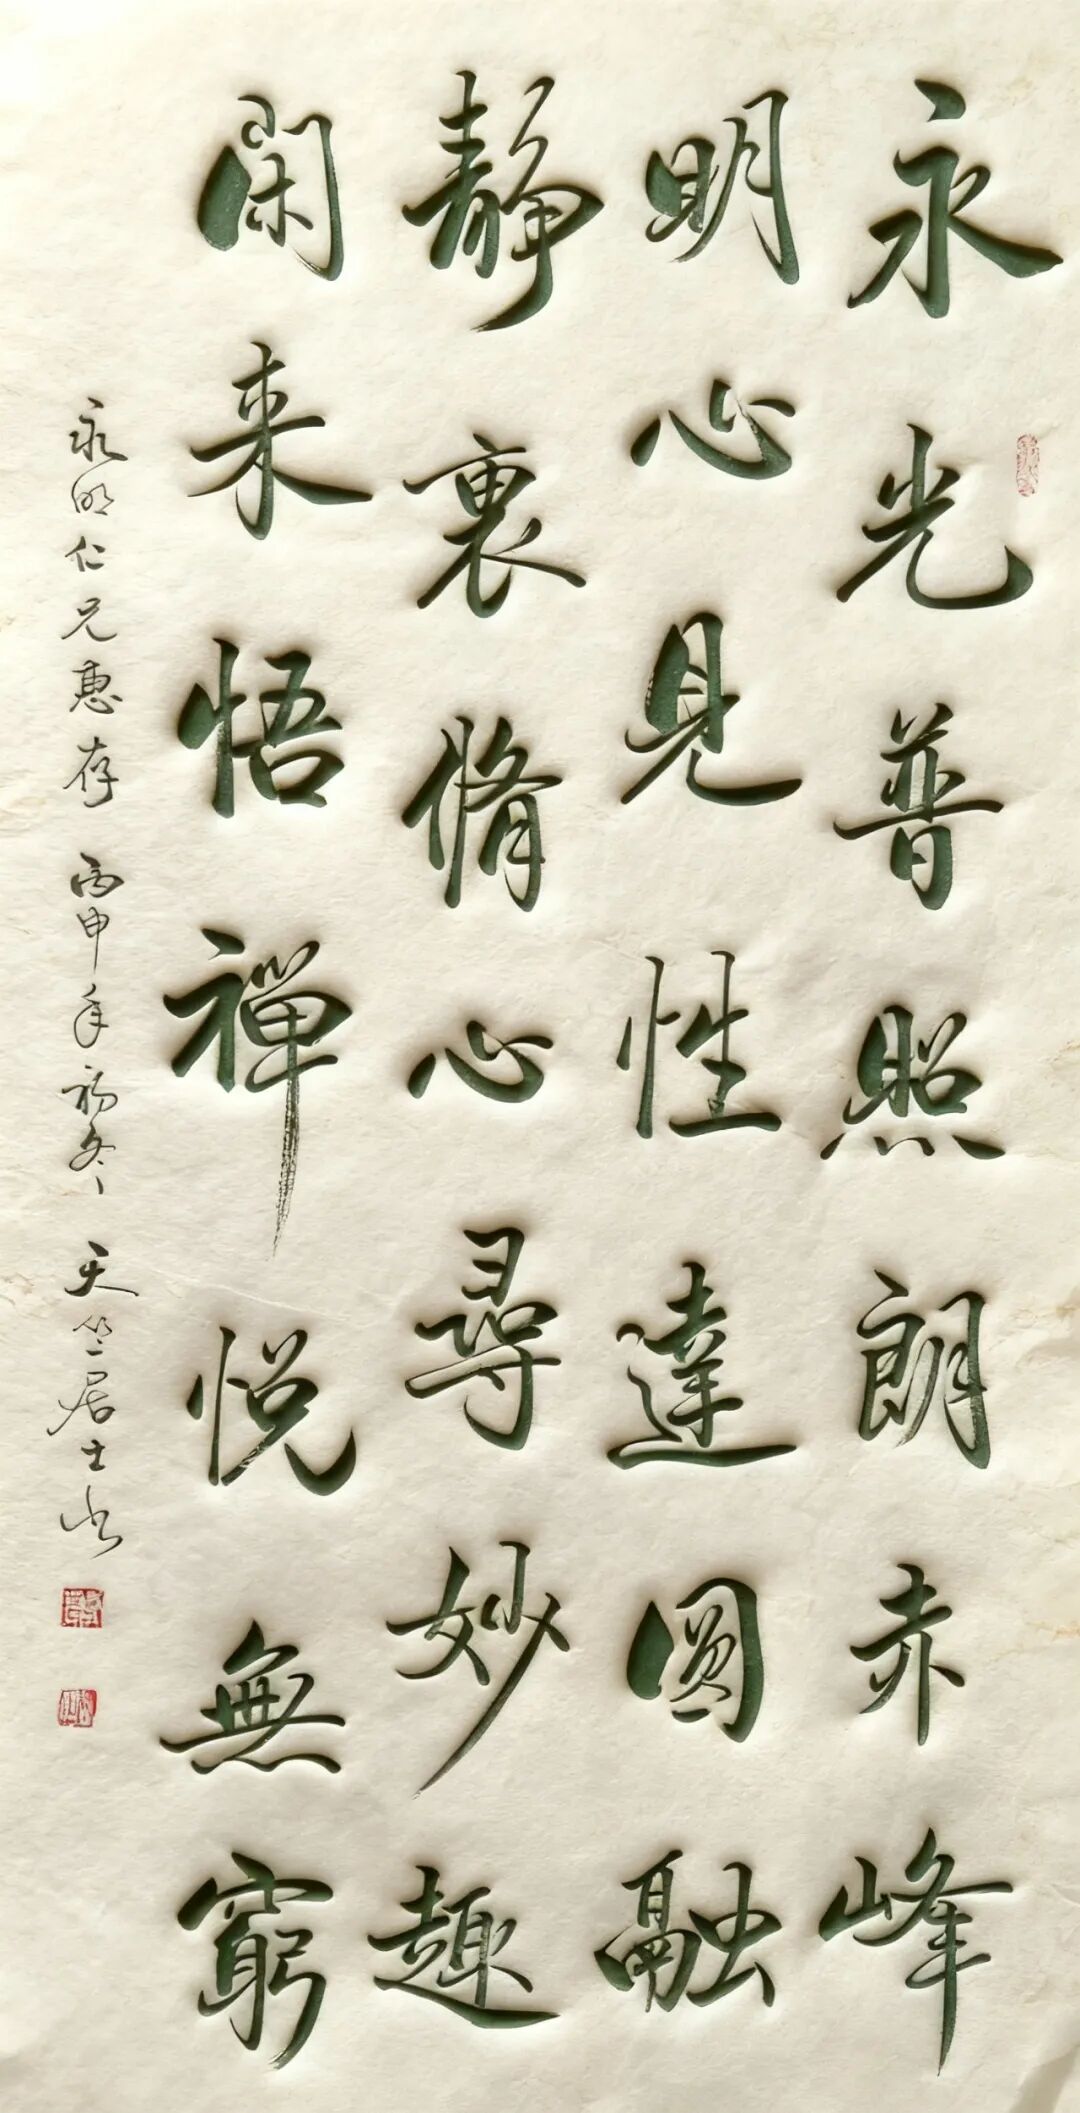 永光普照朗赤峰
明心見性達圓融
靜裏脩心尋妙趣
閑来悟禪悦無窮
永明仁兄惠存 丙申年初冬 天竺居士书